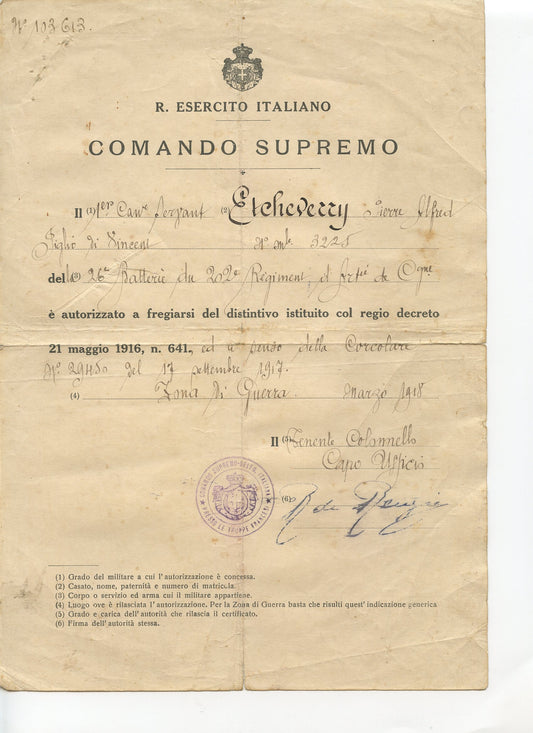 N° 103613.
R. ESERCITO ITALIANO
COMANDO SUPREMO
Il (1) 1er Canr servant (2) Etcheverry Pierre Alfred
Figlio di Vincent N° mle 3225
del (3) 26e Batterie du 202e Regiment d'artie de Cgne
è autorizzato a fregiarsi del distintivo istituito col regio decreto
21 maggio 1916, n. 641., ed a senso della Corcolare
N° 29450 del 17 settembre 1917.
(4) Zona di Guerra. Marzo 1918
Il (5) Tenente Colonnello
Capo Ufficio
(6)
COMANDO SUPREMO ITALIANO
TRUPPE FRANCESI
(1) Grado del militare a cui l'autorizzazione è concessa.
(2) Casato, nome, paternità e numero di matricola.
(3) Corpo o servizio ed arma cui il militare appartiene.
(4) Luogo ove è rilasciata l'autorizzazione. Per la Zona di Guerra basta che risulti quest'indicazione generica
(5) Grado e carica dell'autorità che rilascia il certificato.
(6) Firma dell'autorità stessa.